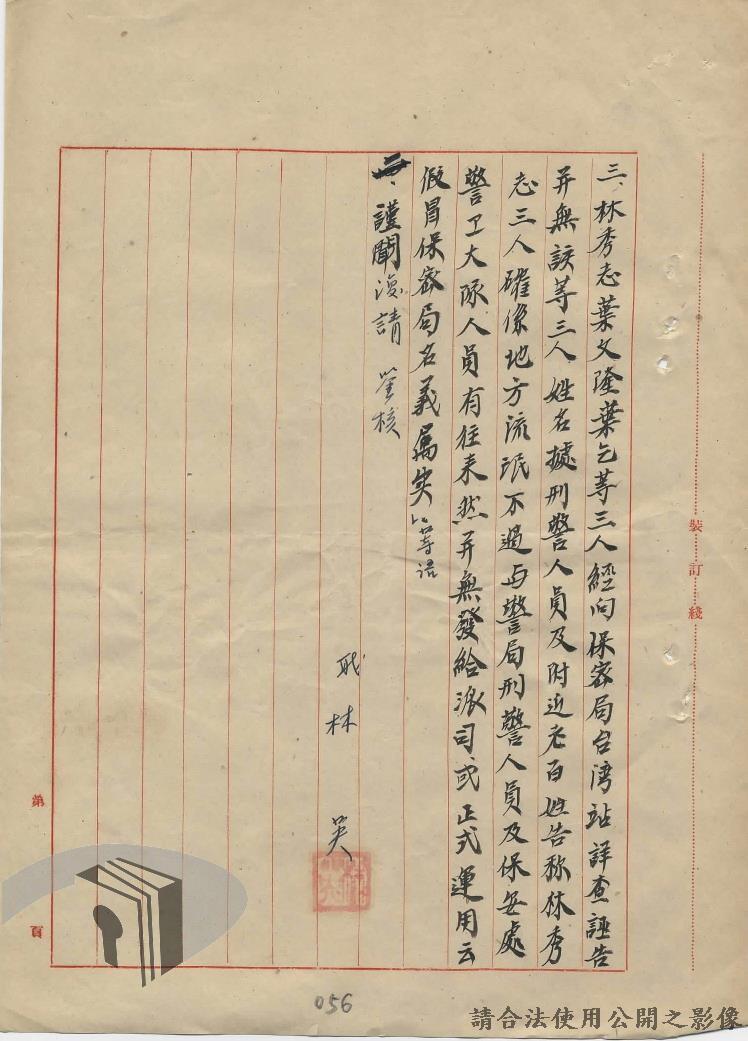 三、林秀志葉文隆葉乞等三人經向保密局台湾站詳查誣告
并無該等三人姓名據刑警人員及附近老百姓告称林秀
志三人確係地方流氓不過与警局刑警人員及保安處
警卫大隊人員有往来然并無發給派司或正式運用云
假冒保密局名義屬实」等语
謹聞復請 鉴核
职 林 英
裝訂綫
第 頁
056
請合法使用公開之影像